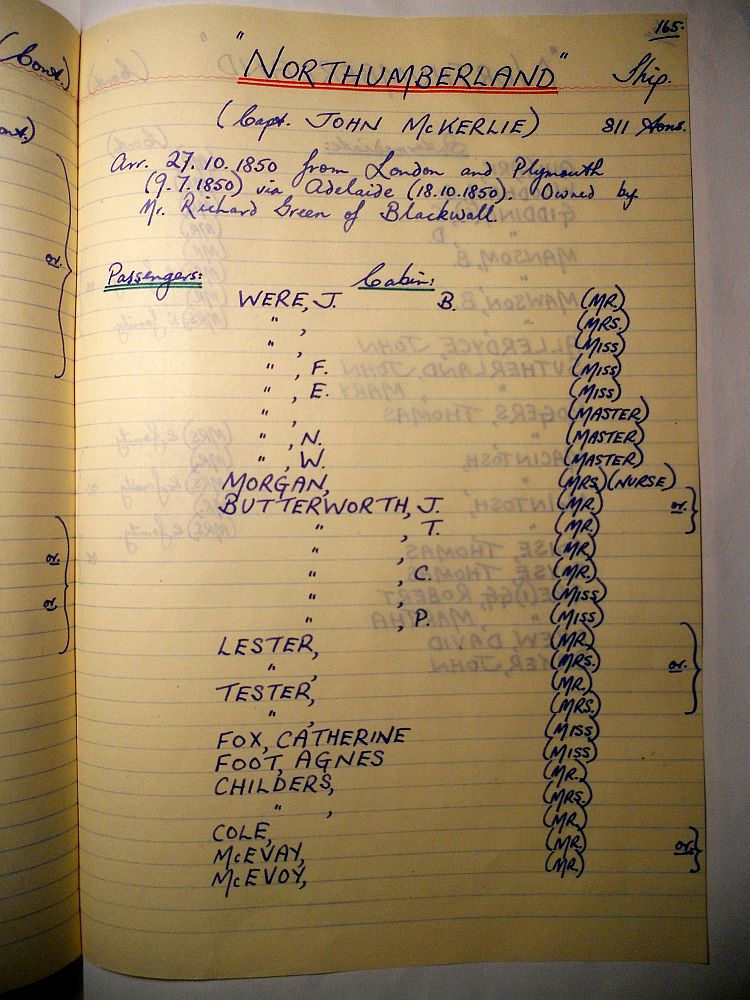 (Cont.)
or.
or.
or.
165.
"NORTHUMBERLAND" Ship.
(Capt. JOHN McKERLIE) 811 tons.
Arr. 27.10.1850 from London and Plymouth
(9.7.1850) via Adelaide (18.10.1850). Owned by
Mr. Richard Green of Blackwall.
Passengers: Cabin:
WERE, J. B. (MR.)
" , (MRS.)
" , (MISS)
" , F. (MISS)
" , E. (MISS)
" , (MASTER)
" , N. (MASTER)
" , W. (MASTER)
MORGAN, MRS. (NURSE)
BUTTERWORTH, J. (MR.) or.
" , T. (MR.)
" , (MR.)
" , C. (MR.)
" , (MISS)
" , P. (MISS)
LESTER, (MR.)
" , (MRS.) or.
TESTER, (MR.)
" , (MRS.)
FOX, CATHERINE (MISS)
FOOT, AGNES (MISS)
CHILDERS, (MR.)
" , (MRS.)
COLE, (MR.)
McEVAY, (MR.) or.
McEVOY, (MR.)